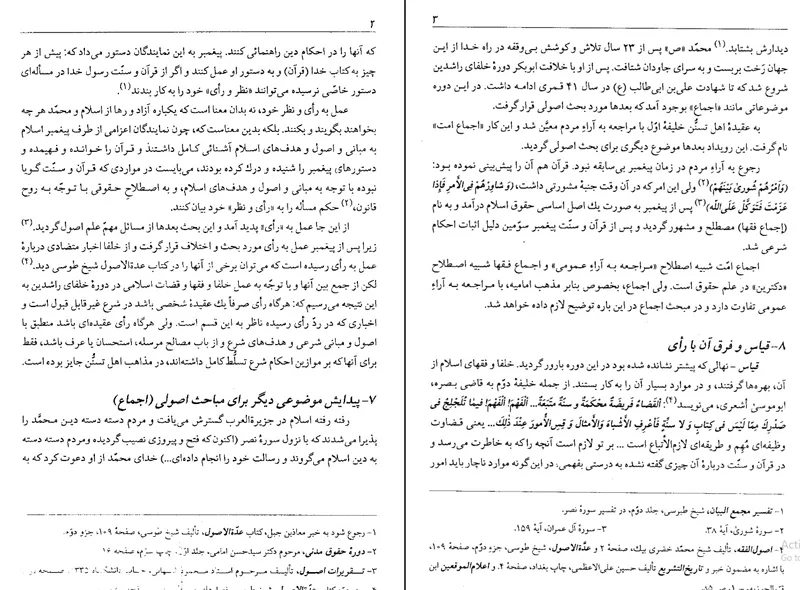 ۲
که آنها را در احکام دین راهنمائی کنند. پیغمبر به این نمایندگان دستور می‌داد که: پیش از هر
چیز به کتاب خدا (قرآن) و به دستور او عمل کنند و اگر از قرآن و سنّت رسول خدا در مسأله‌ای
دستور خاصّی نرسیده می‌توانند «نظر و رأی» خود را به کار بندند(۱).
عمل به رأی و نظر خود، نه بدان معنا است که یکباره آزاد و رها از اسلام و محمّد هر چه
بخواهند بگویند و بکنند. بلکه بدین معناست که، چون نمایندگان اعزامی از طرف پیغمبر اسلام
به مبانی و اصول و هدف‌های اسلام آشنائی کامل داشتند و قرآن را خوانده و فهمیده و
دستورهای پیغمبر را شنیده و درك کرده بودند، می‌بایست در مواردی که قرآن و سنّت گویا
نبوده با توجه به مبانی و اصول و هدف‌های اسلام، و به اصطلاحِ حقوقی با توجّه به روح
قانون،(۲) حکم مسأله را به «رأی و نظر» خود بیان کنند.
از این جا عمل به «رأی» پدید آمد و این بحث بعدها از مسائل مهمّ علم اصول گردید.(۳)
زیرا پس از پیغمبر عمل به رأی مورد بحث و اختلاف قرار گرفت و از خلفا اخبار متضادی دربارهٔ
عمل به رأی رسیده است که می‌توان برخی از آنها را در کتاب عدةالاصول شیخ طوسی دید.(۴)
لکن از جمع بین آنها و با توجّه به عمل خلفا و فقها و قضات اسلامی در دورهٔ خلفای راشدین به
این نتیجه می‌رسیم که: هرگاه رأی صرفاً یك عقیدهٔ شخصی باشد در شرع غیرقابل قبول است و
اخباری که در ردّ رأی رسیده ناظر به این قسم است. ولی هرگاه رأی عقیده‌ای باشد منطبق با
اصول و مبانی شرعی و هدف‌های شرع و از باب مصالح مرسله، استحسان یا عرف باشد، فقط
برای آنها که بر موازین احکام شرع تسلّط کامل داشته‌اند، در مذاهب اهل تسنّن جایز بوده است.
۷- پیدایش موضوعی دیگر برای مباحث اصولی (اجماع)
رفته رفته اسلام در جزیرةالعرب گسترش می‌یافت و مردم دسته دسته دین محمّد را
پذیرا می‌شدند که با نزول سورهٔ نصر (اکنون که فتح و پیروزی نصیب گردیده ومردم دسته دسته
به دین اسلام می‌گروند و رسالت خود را انجام داده‌ای...) خدای محمّد از او دعوت کرد که به
۱- رجوع شود به خبر معاذبن جبل، کتاب عدّةالاصول، تألیف شیخ طوسی، صفحهٔ ۱۰۹، جزو دوّم.
۲- دورهٔ حقوق مدنی، مرحوم دکتر سیدحسن امامی، جلد اوّل، چاپ سوّم، صفحه ۱۶
۳- تقریرات اصول، تألیف مرحوم استاد
۳
دیدارش بشتابد.(۱) محمّد «ص» پس از ۲۳ سال تلاش و کوشش بی‌وقفه در راه خدا از این
جهان رَخت بربست و به سرای جاودان شتافت. پس از او با خلافت ابوبکر دورهٔ خلفای راشدین
شروع شد که تا شهادت علی‌بن ابی‌طالب (ع) در سال ۴۱ قمری ادامه داشت. در این دوره
موضوعاتی مانند «اجماع» بوجود آمد که بعدها مورد بحث اصولی قرار گرفت.
به عقیدهٔ اهل تسنُّن خلیفهٔ اوّل با مراجعه به آراءِ مردم معیّن شد و این کار «اجماع امت»
نام گرفت. این رویداد بعدها موضوع دیگری برای بحث اصولی گردید.
رجوع به آراءِ مردم در زمان پیغمبر بی‌سابقه نبود. قرآن هم آن را پیش‌بینی نموده بود:
(وَ اَمْرُهُمْ شُوریٰ بَیْنَهُمْ)(۲) ولی این امر که در آن وقت جنبهٔ مشورتی داشت، (وَ شاوِرْهُمْ فِی الْأَمرِ فَإِذا
عَزَمْتَ فَتَوَکَّلْ عَلَی اللّٰه)(۳) پس از پیغمبر به صورت یك اصل اساسی حقوق اسلام درآمد و به نام
(اجماع فقها) مصطلح و مشهور گردید و پس از قرآن و سنّت پیغمبر سوّمین دلیل اثبات احکام
شرعی شد.
اجماع امّت شبیه اصطلاح «مراجعه به آراءِ عمومی» و اجماع فقها شبیه اصطلاح
«دکترین» در علم حقوق است. ولی اجماع، بخصوص بنابر مذهب امامیه، با مراجعه به آراءِ
عمومی تفاوت دارد و در مبحث اجماع در این باره توضیح لازم داده خواهد شد.
۸- قیاس و فرق آن با رأی
قیاس - نهالی که پیشتر نشانده شده بود در این دوره بارور گردید. خلفا و فقهای اسلام از
آن، بهره‌ها گرفتند، و در موارد بسیار آن را به کار بستند. از جمله خلیفهٔ دوّم به قاضی بصره،
ابوموسیٰ أشعری، می‌نویسد(۴): اَلقَضاءُ فَریضَةٌ مُحْکَمَةٌ وَ سنَّةٌ مُتَّبَعَة... اَلْفَهْمَ اَلْفَهْمَ فیمٰا تَلَجْلَجَ فی
صَدْرِكَ مِمّا لَیْسَ فی کِتابٍ وَ لا سنَّةٍ فَأعْرِفِ الْأَشْباهَ وَالْأَمْثالَ وَ قِسِ الْأُمورَ عِنْدَ ذٰلِكَ... یعنی قضاوت
وظیفه‌ای مُهم و طریقه‌ای لازم‌الاتّباع است ... بر تو لازم است آنچه را که به خاطرت می‌رسد و
در قرآن و سنّت دربارهٔ آن چیزی گفته نشده به درستی بفهمی، در این‌گونه موارد ناچار باید امور
۱- تفسیر مجمع البیان، شیخ طبرسی، جلد دوّم، در تفسیر سورهٔ نصر.
۲- سورهٔ شوریٰ، آیهٔ ۳۸. ۳- سورهٔ آل عمران، آیهٔ ۱۵۹.
۴- اصول‌الفقه، تألیف شیخ محمّد خضری بیك، صفحهٔ ۲ و عدّةالاصول، شیخ طوسی، جزو دوّم، صفحهٔ ۱۰۹،
با اشاره به مضمون خبر و تاریخ‌التشریع تألیف حسین علی‌الاعظمی، چاپ بغداد، صفحهٔ ۴. و اعلام‌الموقعین ابن